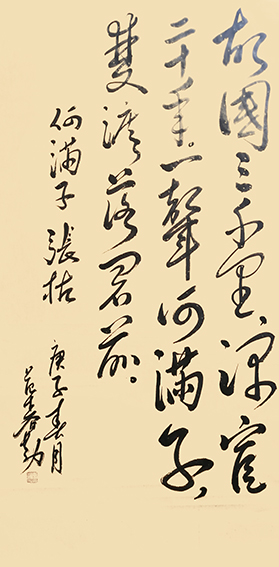 故國三千里,深宫
二十年。一聲何滿子,
雙淚落君前。
何滿子 張祜
庚子春月